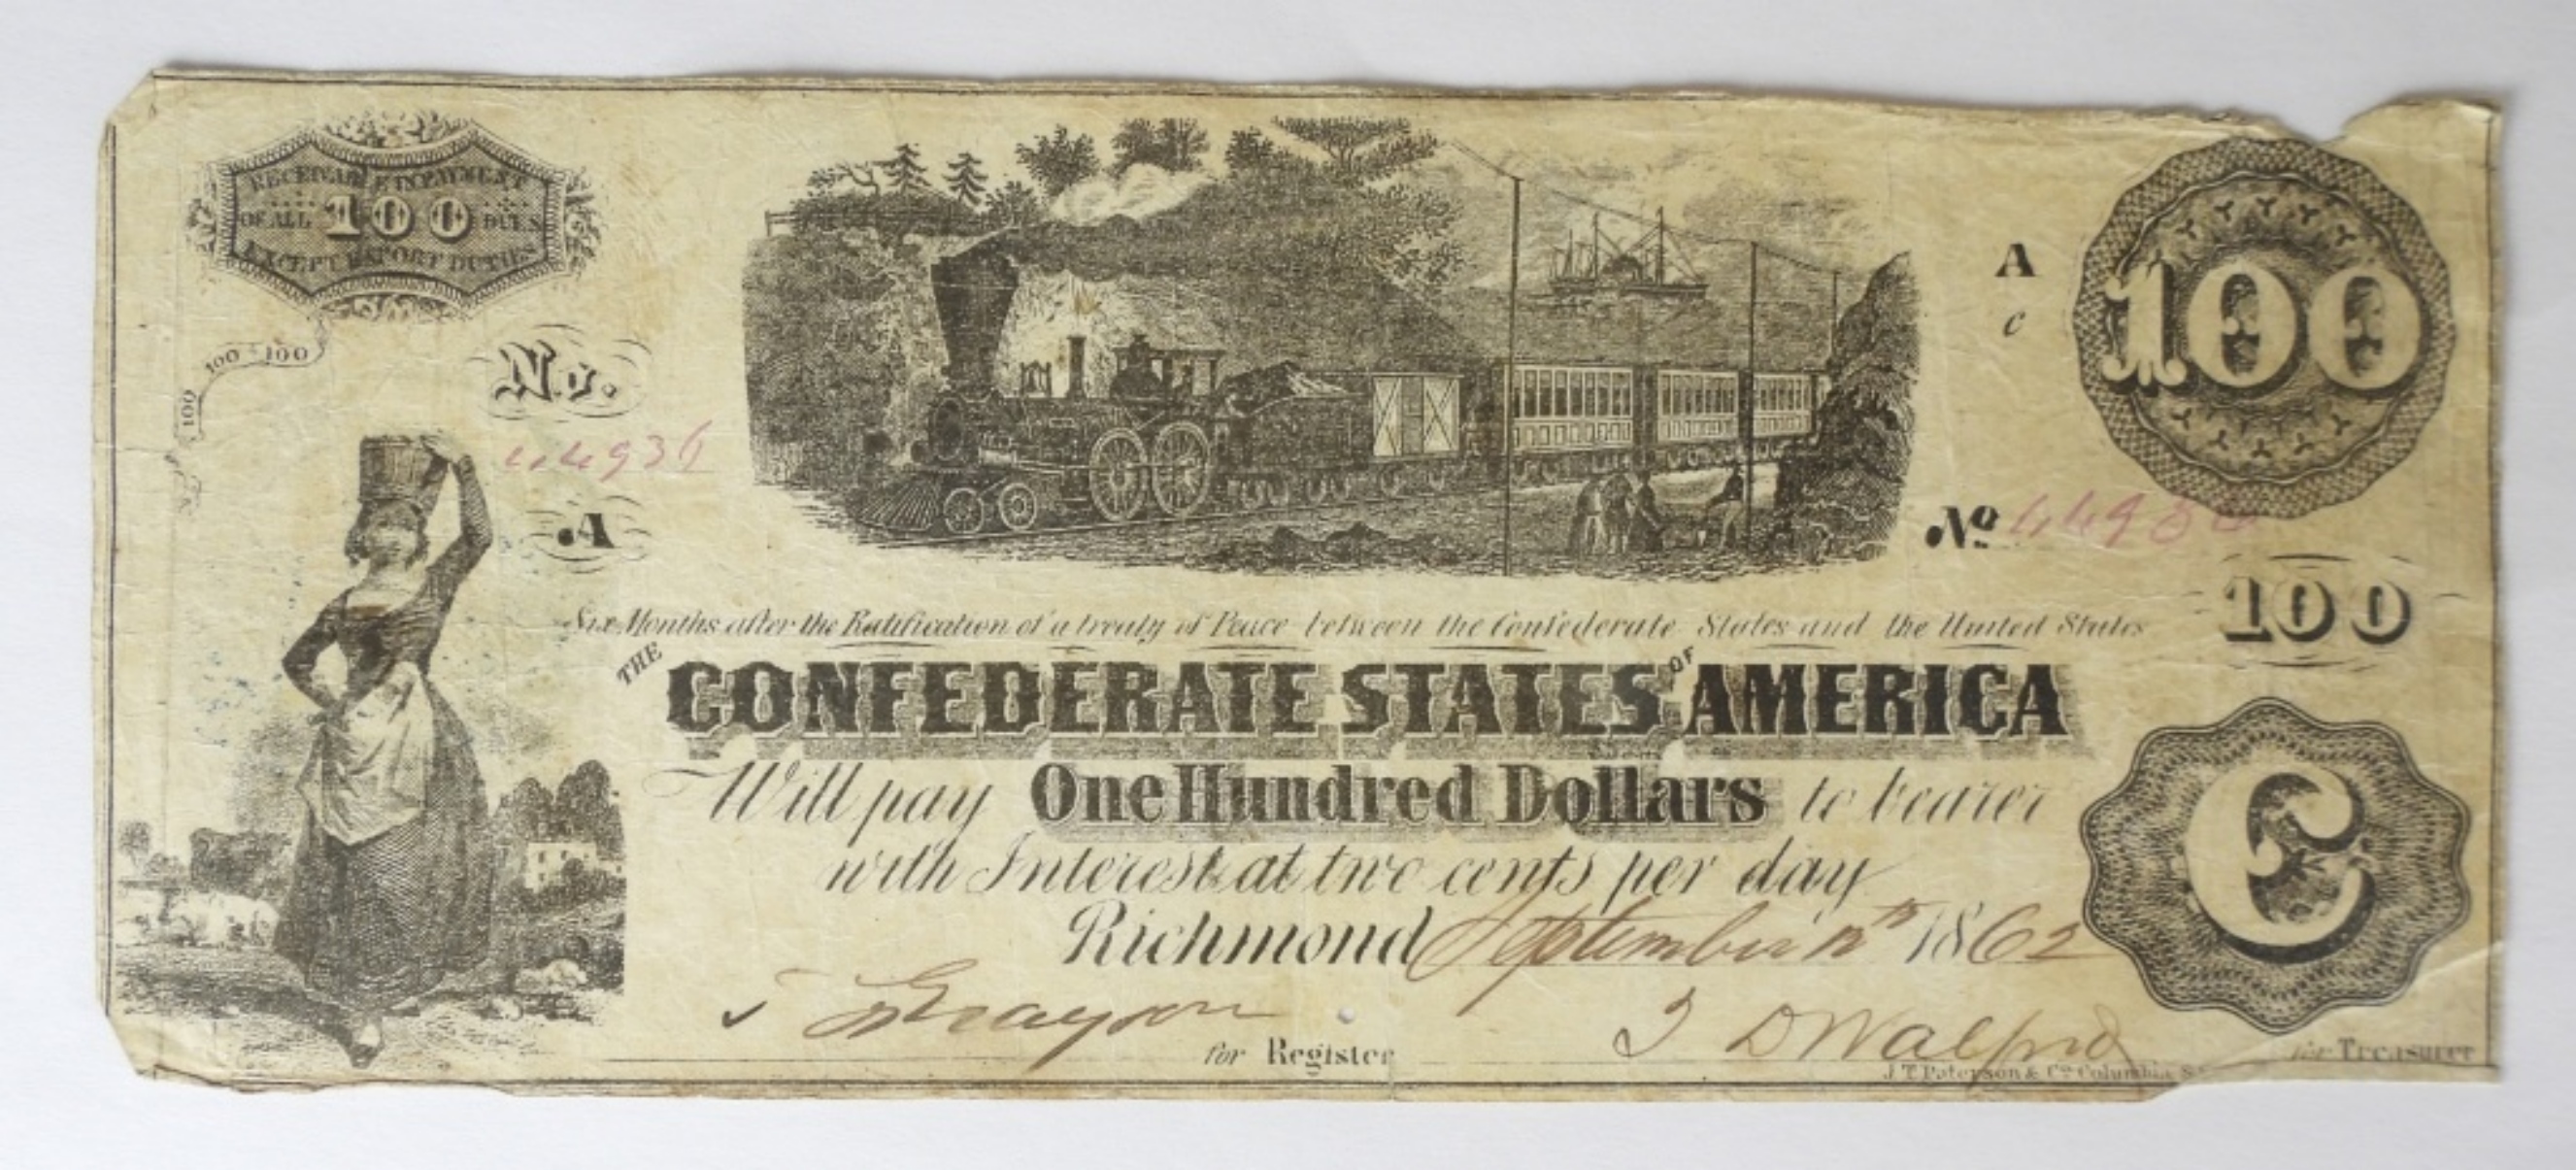 RECEIVABLE IN PAYMENT
OF ALL 100 DUES
EXCEPT EXPORT DUTIES
100 100
100
No.
44936
A
A
c
100
No 44936
100
Six Months after the Ratification of a treaty of Peace between the Confederate States and the United States
THE CONFEDERATE STATES OF AMERICA
Will pay One Hundred Dollars to bearer
with Interest at two cents per day
Richmond September 12th 1862
C
Grayson
for Register
J D Walford
for Treasurer
J. T. Paterson & Co Columbia S